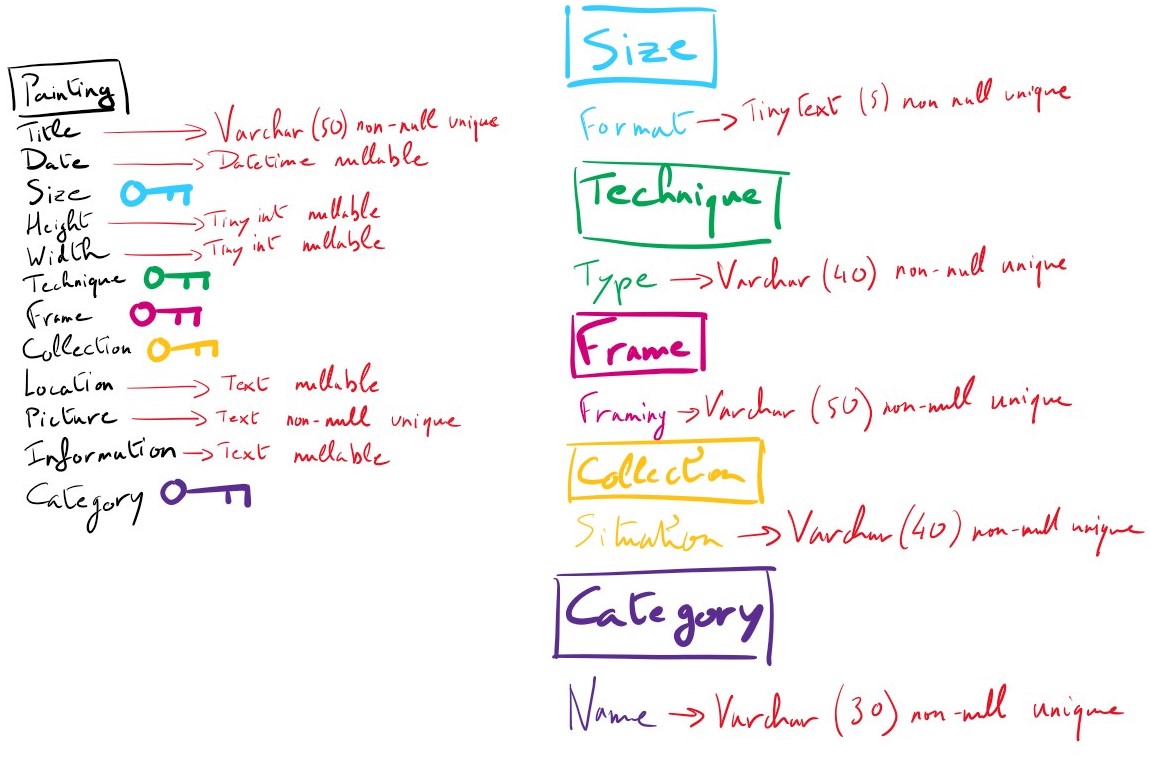 Painting
Title → Varchar (50) non-null unique
Date → Datetime nullable
Size
Height → Tiny int nullable
Width → Tiny int nullable
Technique
Frame
Collection
Location → Text nullable
Picture → Text non-null unique
Information → Text nullable
Category
Size
Format → TinyText (5) non null unique
Technique
Type → Varchar (40) non-null unique
Frame
Framing → Varchar (50) non-null unique
Collection
Situation → Varchar (40) non-null unique
Category
Name → Varchar (30) non-null unique